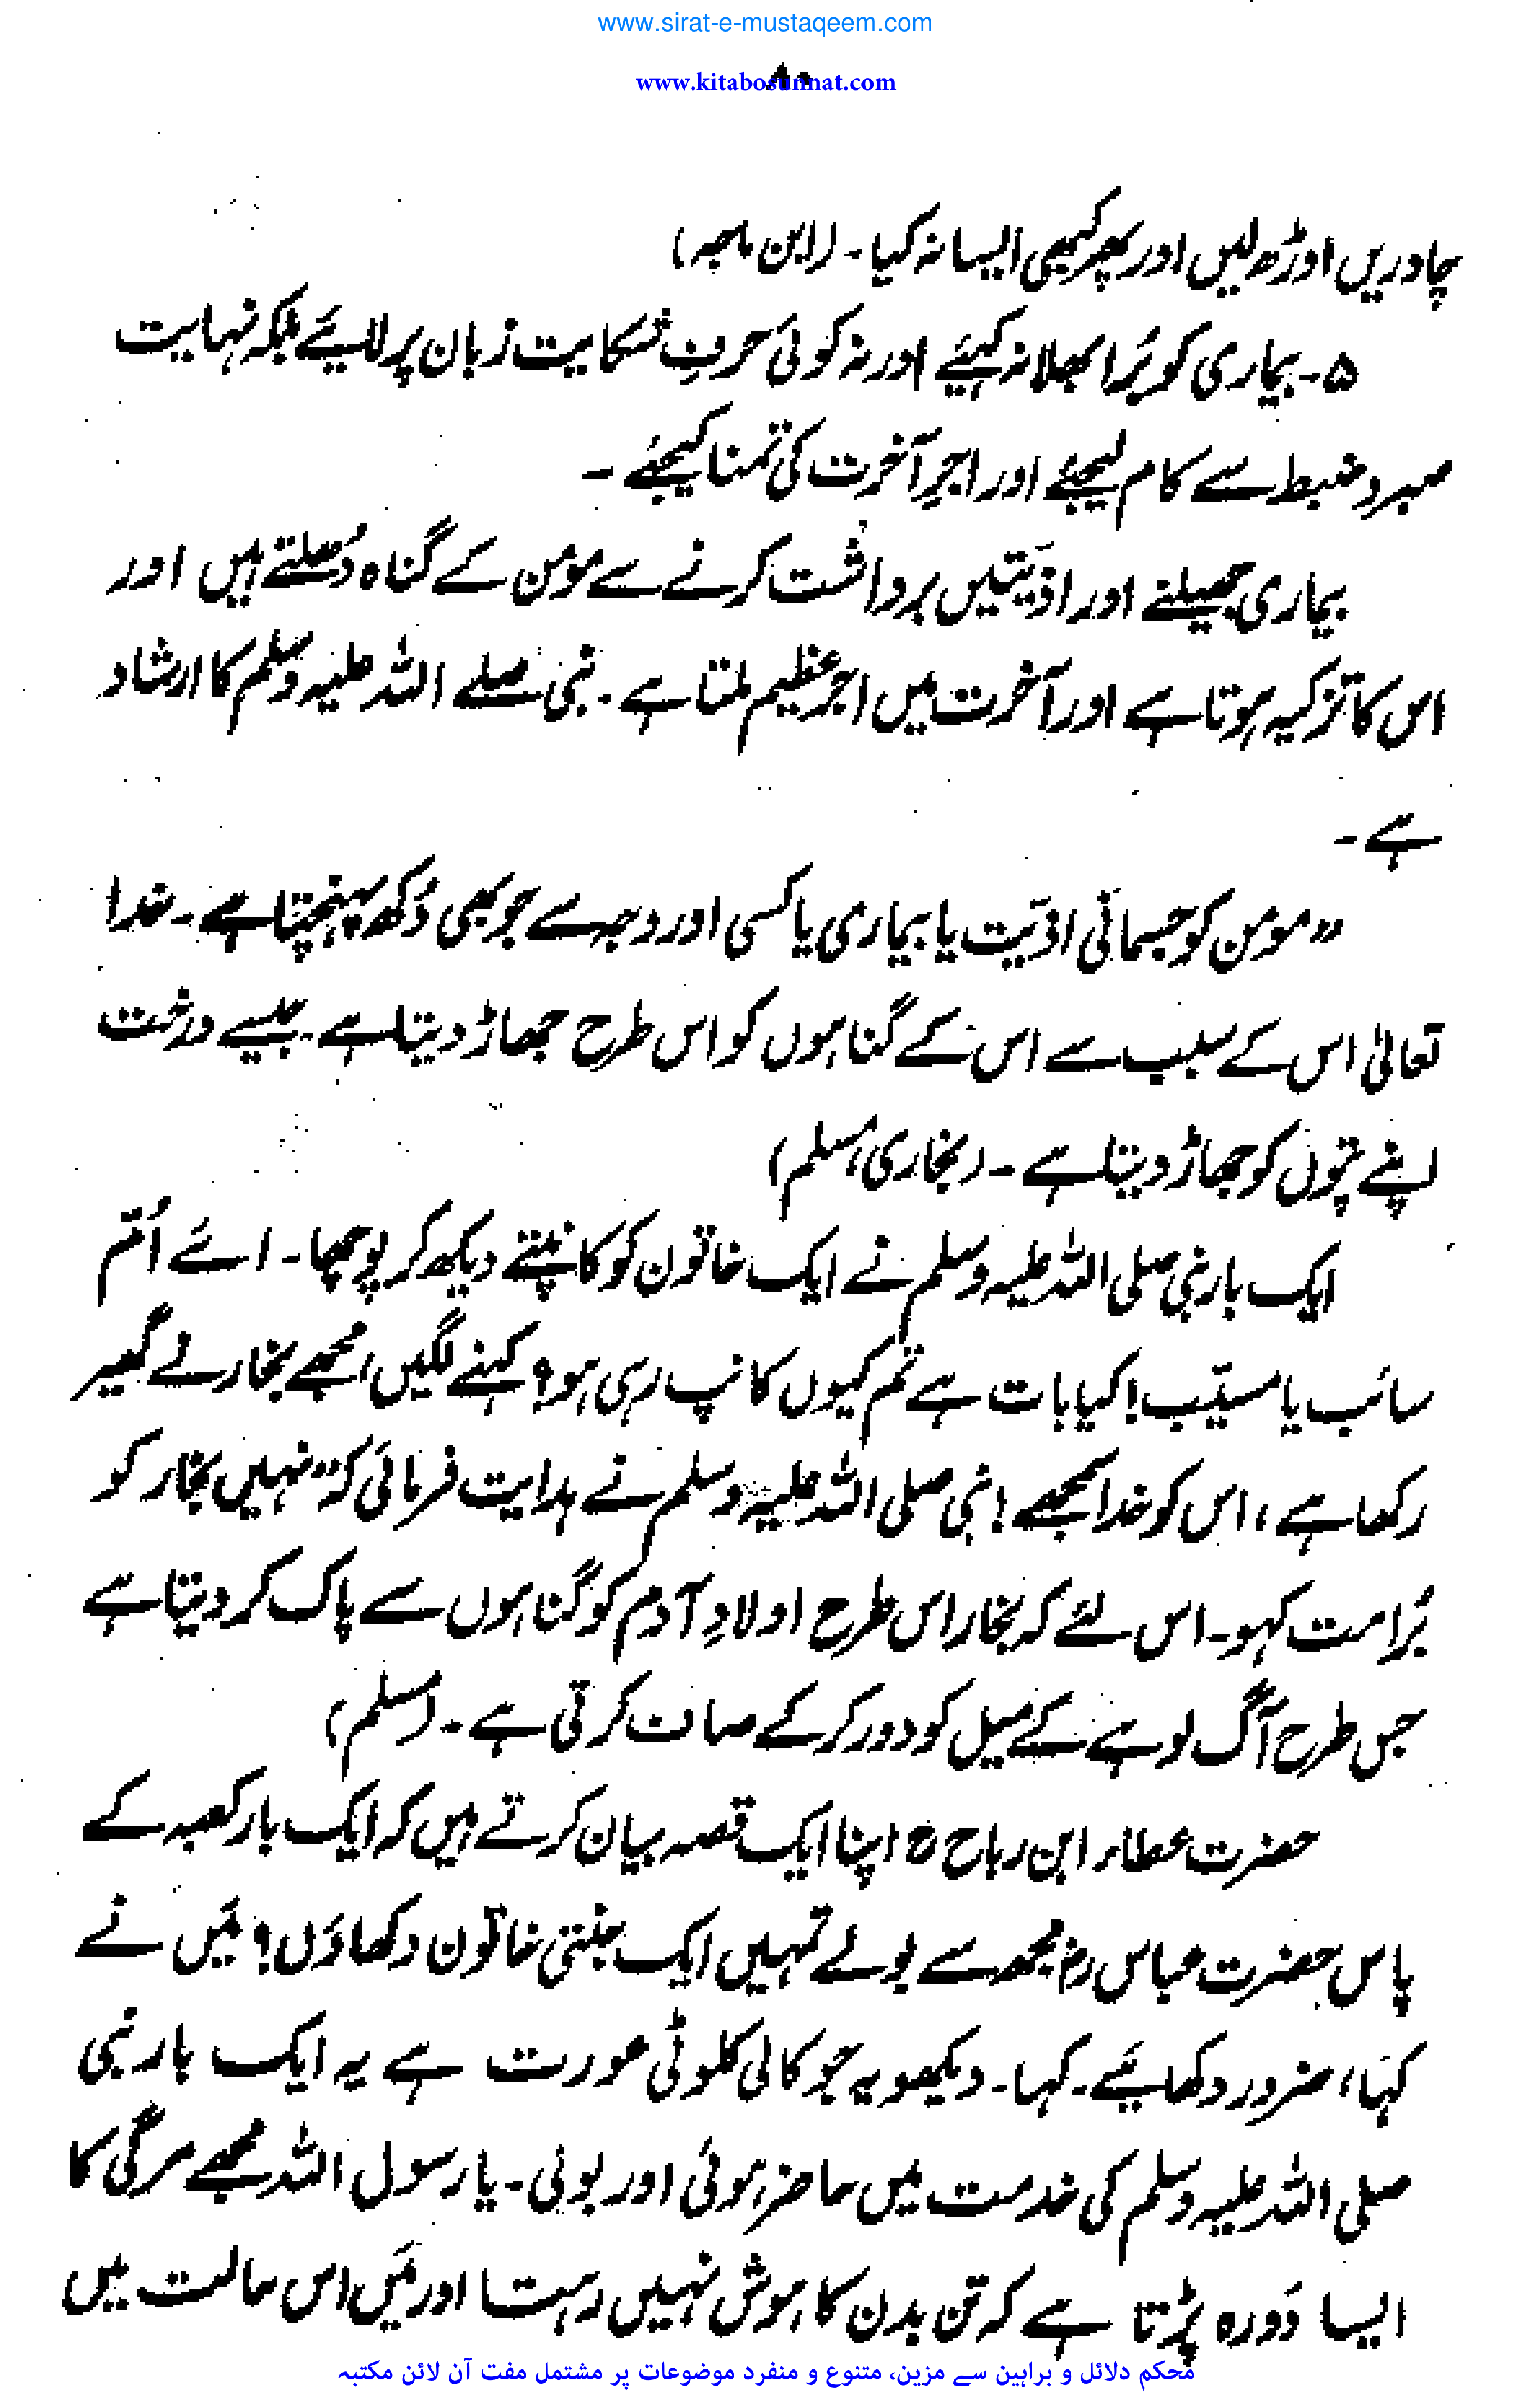 www.sirat-e-mustaqeem.com
۸۰
www.kitabosunnat.com
چادریں اوڑھ لیں اور پھر کبھی ایسا نہ کیا۔ (ابن ماجہ)
۵۔ بیماری کو بُرا بھلا نہ کہیئے اور نہ کوئی حرفِ شکایت زبان پر لایئے بلکہ نہایت
صبر و ضبط سے کام لیجئے اور اجرِ آخرت کی تمنا کیجئے ۔
بیماری جھیلنے اور اذیتیں برداشت کرنے سے مومن کے گناہ دُھلتے ہیں اور
اس کا تزکیہ ہوتا ہے اور آخرت میں اجر عظیم ملتا ہے۔ نبی صلے اللہ علیہ وسلم کا ارشاد
ہے ۔
”مومن کو جسمانی اذیت یا بیماری یا کسی اور وجہ سے جو بھی دُکھ پہنچتا ہے ۔ خدا
تعالیٰ اس کے سبب سے اس کے گناہوں کو اس طرح جھاڑ دیتا ہے۔ جیسے درخت
اپنے پتوں کو جھاڑ دیتا ہے ۔ (بخاری، مسلم)
ایک بار نبی صلی اللہ علیہ وسلم نے ایک خاتون کو کانپتے دیکھ کر پوچھا۔ اے اُمّ
سائب یا مسیّب! کیا بات ہے تم کیوں کانپ رہی ہو؟ کہنے لگیں، مجھے بخار نے گھیر
رکھا ہے، اس کو خدا سمجھے! نبی صلی اللہ علیہ وسلم نے ہدایت فرمائی کہ ”نہیں بخار کو
بُرا مت کہو۔ اس لئے کہ بخار اس طرح اولادِ آدم کو گناہوں سے پاک کر دیتا ہے
جس طرح آگ لوہے کے میل کو دور کرکے صاف کرتی ہے ۔ (مسلم)
حضرت عطاء ابن رباح ؒ اپنا ایک قصہ بیان کرتے ہیں کہ ایک بار کعبہ کے
پاس حضرت عباس رضؓ مجھ سے بولے تمہیں ایک جنتی خاتون دکھاؤں؟ مَیں نے
کہا، ضرور دکھایئے۔ کہا۔ دیکھو یہ جو کالی کلوٹی عورت ہے یہ ایک بار نبی
صلی اللہ علیہ وسلم کی خدمت میں حاضر ہوئی اور بولی۔ یا رسول اللہ مجھے مرگی کا
ایسا دَورہ پڑتا ہے کہ تن بدن کا ہوش نہیں رہتا اور مَیں اس حالت میں
محکم دلائل و براہین سے مزین، متنوع و منفرد موضوعات پر مشتمل مفت آن لائن مکتبہ